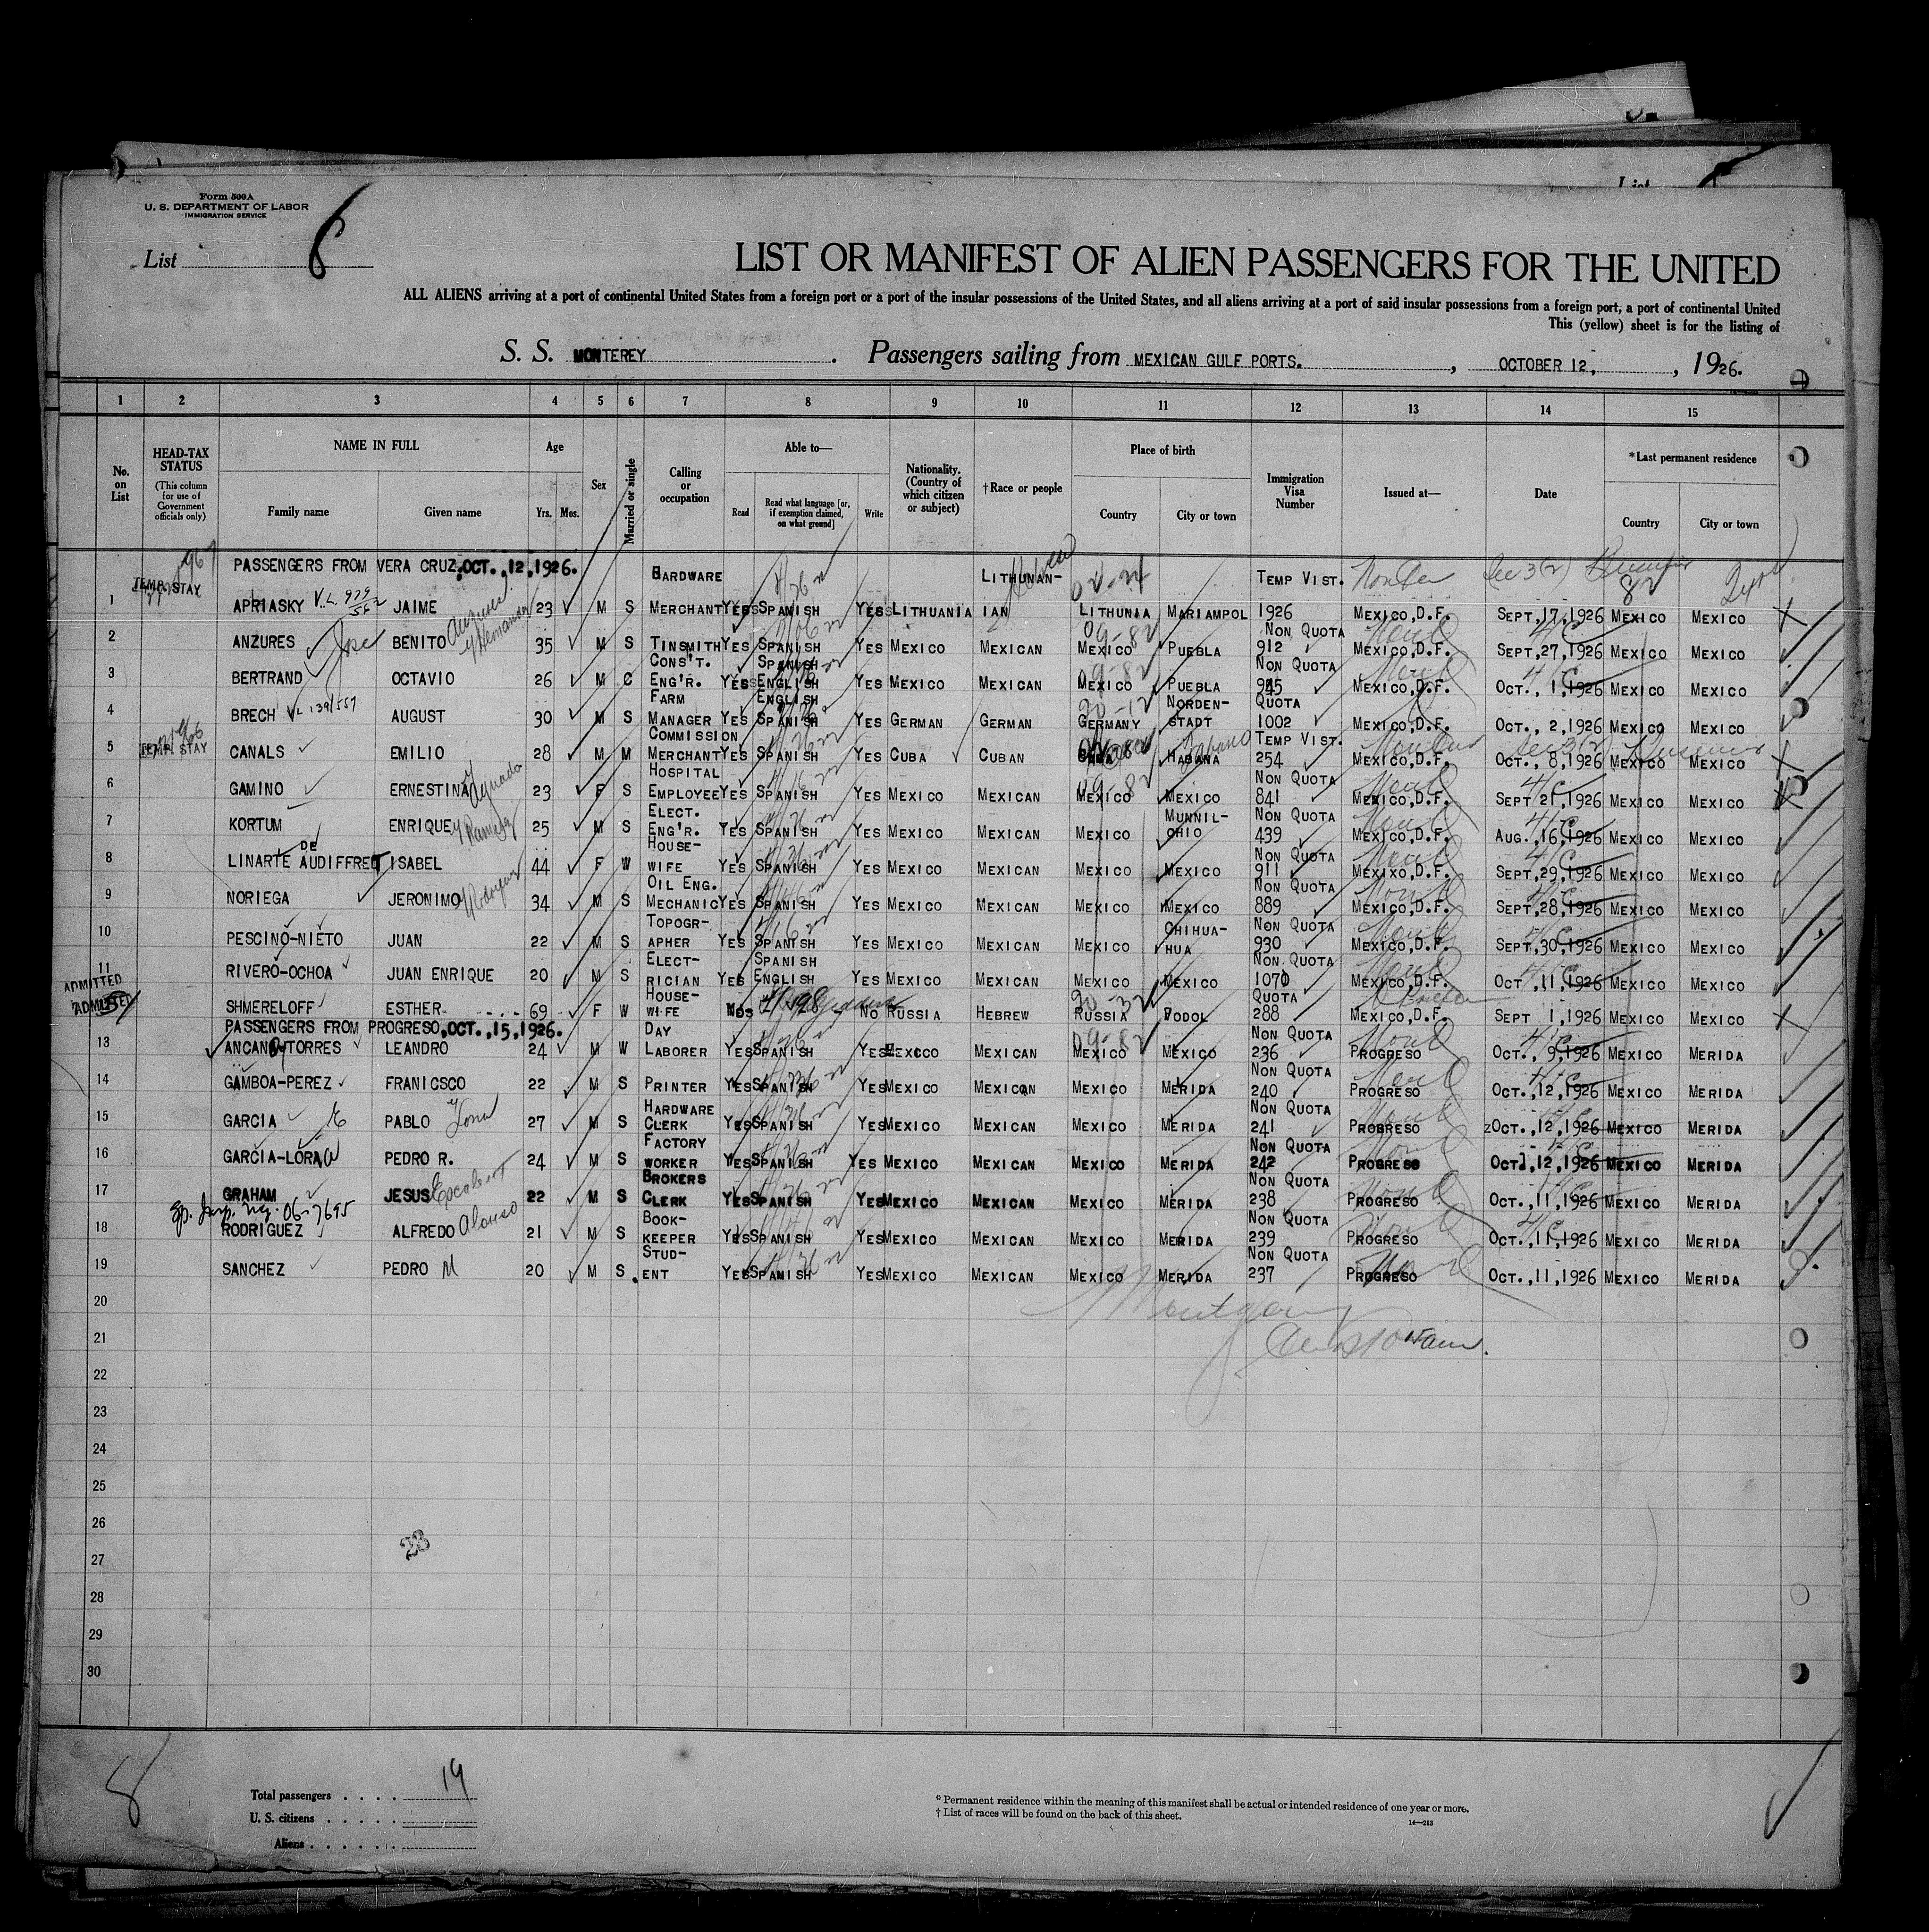 Form 500A
U. S. DEPARTMENT OF LABOR
IMMIGRATION SERVICE
List 8
LIST OR MANIFEST OF ALIEN PASSENGERS FOR THE UNITED
ALL ALIENS arriving at a port of continental United States from a foreign port or a port of the insular possessions of the United States, and all aliens arriving at a port of said insular possessions from a foreign port, a port of continental United
This (yellow) sheet is for the listing of
S. S. MONTEREY. Passengers sailing from MEXICAN GULF PORTS. , OCTOBER 12, , 1926.
1 2 3 4 5 6 7 8 9 10 11 12 13 14 15
No. on List
HEAD-TAX STATUS (This column for use of Government officials only)
NAME IN FULL Family name Given name
Age Yrs. Mos.
Sex
Married or single
Calling or occupation
Able to— Read Read what language [or, if exemption claimed, on what ground] Write
Nationality. (Country of which citizen or subject)
†Race or people
Place of birth Country City or town
Immigration Visa Number
Issued at—
Date
*Last permanent residence Country City or town
PASSENGERS FROM VERA CRUZ, OCT., 12, 1926.
1 TEMP. STAY APRIASKY JAIME 23 M S HARDWARE MERCHANT YES SPANISH YES LITHUANIA LITHUNAN-IAN LITHUNIA MARIAMPOL TEMP VIST. 1926 MEXICO,D.F. SEPT,17,1926 MEXICO MEXICO
2 ANZURES BENITO 35 M S TINSMITH YES SPANISH YES MEXICO MEXICAN MEXICO PUEBLA NON QUOTA 912 MEXICO,D.F. SEPT,27,1926 MEXICO MEXICO
3 BERTRAND OCTAVIO 26 M C CONS'T. ENG'R. YES SPANISH ENGLISH YES MEXICO MEXICAN MEXICO PUEBLA NON QUOTA 945 MEXICO,D.F. OCT., 1,1926 MEXICO MEXICO
4 BRECH AUGUST 30 M S FARM MANAGER YES ENGLISH SPANISH YES GERMAN GERMAN GERMANY NORDEN-STADT QUOTA 1002 MEXICO,D.F. OCT., 2,1926 MEXICO MEXICO
5 TEMP. STAY CANALS EMILIO 28 M M COMMISSION MERCHANT YES SPANISH YES CUBA CUBAN CUBA HABANA TEMP VIST. 254 MEXICO,D.F. OCT., 8,1926 MEXICO MEXICO
6 GAMINO ERNESTINA 23 F S HOSPITAL EMPLOYEE YES SPANISH YES MEXICO MEXICAN MEXICO MEXICO NON QUOTA 841 MEXICO,D.F. SEPT 21,1926 MEXICO MEXICO
7 KORTUM ENRIQUE 25 M S ELECT. ENG'R. YES SPANISH YES MEXICO MEXICAN MEXICO MUNNIL-CHIO NON QUOTA 439 MEXICO,D.F. AUG.,16,1926 MEXICO MEXICO
8 LINARTE DE AUDIFFRED ISABEL 44 F W HOUSE-WIFE YES SPANISH YES MEXICO MEXICAN MEXICO MEXICO NON QUOTA 911 MEXIXO,D.F. SEPT,29,1926 MEXICO MEXICO
9 NORIEGA JERONIMO y Rodriguez 34 M S OIL ENG. MECHANIC YES SPANISH YES MEXICO MEXICAN MEXICO MEXICO NON QUOTA 889 MEXICO,D.F. SEPT,28,1926 MEXICO MEXICO
10 PESCINO-NIETO JUAN 22 M S TOPOGR-APHER YES SPANISH YES MEXICO MEXICAN MEXICO CHIHUA-HUA NON QUOTA 930 MEXICO,D.F. SEPT,30,1926 MEXICO MEXICO
11 RIVERO-OCHOA JUAN ENRIQUE 20 M S ELECT-RICIAN YES SPANISH ENGLISH YES MEXICO MEXICAN MEXICO MEXICO NON QUOTA 1070 MEXICO,D.F. OCT.,11,1926 MEXICO MEXICO
ADMITTED SHMERELOFF ESTHER 69 F W HOUSE-WIFE NO NO RUSSIA HEBREW RUSSIA PODOL QUOTA 288 MEXICO,D.F. SEPT 1,1926 MEXICO MEXICO
PASSENGERS FROM PROGRESO, OCT., 15, 1926.
13 ANCANO-TORRES LEANDRO 24 M W DAY LABORER YES SPANISH YES MEXICO MEXICAN MEXICO MEXICO NON QUOTA 236 PROGRESO OCT., 9,1926 MEXICO MERIDA
14 GAMBOA-PEREZ FRANICSCO 22 M S PRINTER YES SPANISH YES MEXICO MEXICAN MEXICO MERIDA NON QUOTA 240 PROGRESO OCT.,12,1926 MEXICO MERIDA
15 GARCIA PABLO 27 M S HARDWARE CLERK YES SPANISH YES MEXICO MEXICAN MEXICO MERIDA NON QUOTA 241 PROGRESO OCT.,12,1926 MEXICO MERIDA
16 GARCIA-LORA PEDRO R. 24 M S FACTORY WORKER YES SPANISH YES MEXICO MEXICAN MEXICO MERIDA NON QUOTA 242 PROGRESO OCT.,12,1926 MEXICO MERIDA
17 GRAHAM JESUS 22 M S BROKERS CLERK YES SPANISH YES MEXICO MEXICAN MEXICO MERIDA NON QUOTA 238 PROGRESO OCT.,11,1926 MEXICO MERIDA
18 RODRIGUEZ ALFREDO Alonso 21 M S BOOK-KEEPER YES SPANISH YES MEXICO MEXICAN MEXICO MERIDA NON QUOTA 239 PROGRESO OCT.,11,1926 MEXICO MERIDA
19 SANCHEZ PEDRO M 20 M S STUD-ENT YES SPANISH YES MEXICO MEXICAN MEXICO MERIDA NON QUOTA 237 PROGRESO OCT.,11,1926 MEXICO MERIDA
20
21
22
23
24
25
26
27
28
29
30
28
8
Total passengers 19
U. S. citizens
Aliens
* Permanent residence within the meaning of this manifest shall be actual or intended residence of one year or more.
† List of races will be found on the back of this sheet.
14—213